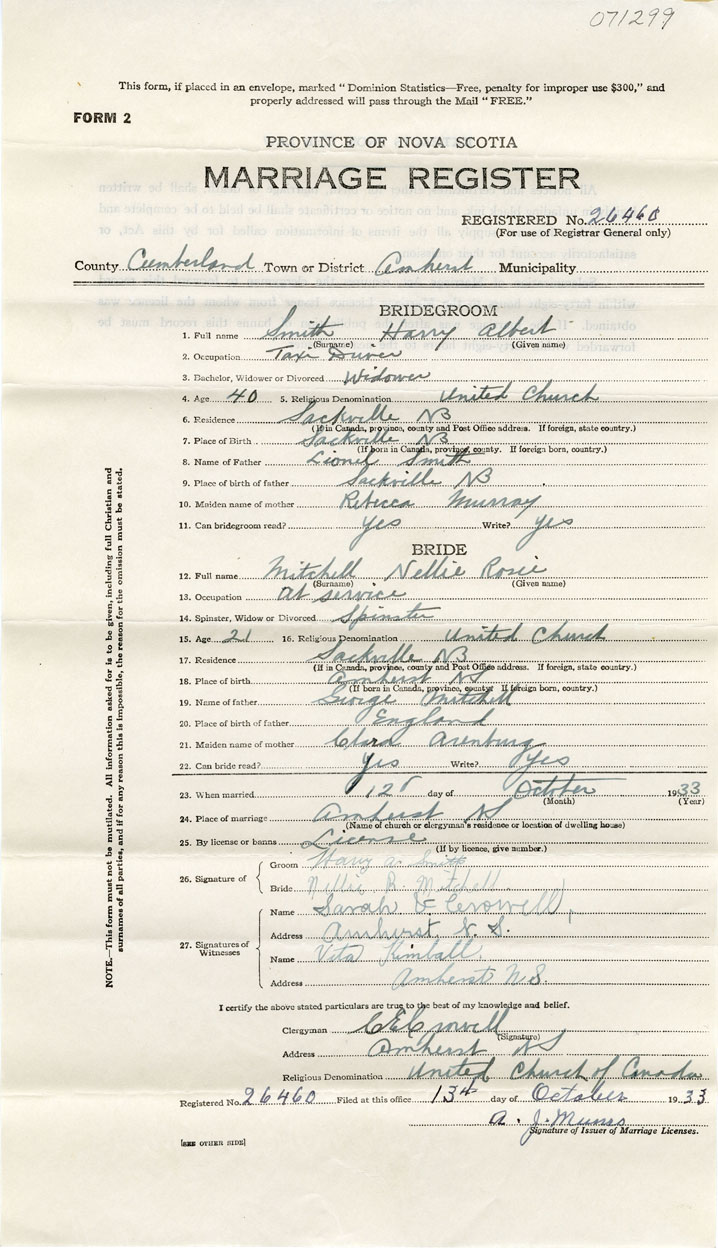 071299
This form, if placed in an envelope, marked "Dominion Statistics—Free, penalty for improper use $300," and
properly addressed will pass through the Mail "FREE."
FORM 2
PROVINCE OF NOVA SCOTIA
MARRIAGE REGISTER
REGISTERED No. 26460
(For use of Registrar General only)
County Cumberland Town or District Amherst Municipality
BRIDEGROOM
1. Full name Smith Harry Albert
(Surname) (Given name)
2. Occupation Taxi Driver
3. Bachelor, Widower or Divorced Widower
4. Age 40 5. Religious Denomination United Church
6. Residence Sackville NB
(If in Canada, province, county and Post Office address. If foreign, state country.)
7. Place of Birth Sackville NB
(If born in Canada, province, county. If foreign born, country.)
8. Name of Father Lionel Smith
9. Place of birth of father Sackville NB
10. Maiden name of mother Rebecca Murray
11. Can bridegroom read? yes Write? yes
BRIDE
12. Full name Mitchell Nellie Rosie
(Surname) (Given name)
13. Occupation at service
14. Spinster, Widow or Divorced Spinster
15. Age 21 16. Religious Denomination United Church
17. Residence Sackville NB
(If in Canada, province, county and Post Office address. If foreign, state country.)
18. Place of birth Amherst NS
(If born in Canada, province, county. If foreign born, country.)
19. Name of father George Mitchell
20. Place of birth of father England
21. Maiden name of mother Clara Arenburg
22. Can bride read? Yes Write? Yes
23. When married 12 day of October 1933
(Month) (Year)
24. Place of marriage Amherst NS
(Name of church or clergyman's residence or location of dwelling house)
25. By license or banns License
(If by licence, give number.)
26. Signature of
Groom Harry A Smith
Bride Nellie R. Mitchell
27. Signatures of Witnesses
Name Sarah E Crowell
Address Amherst, N. S.
Name Vita Kimball
Address Amherst N.S.
I certify the above stated particulars are true to the best of my knowledge and belief.
Clergyman C E Crowell
(Signature)
Address Amherst NS
Religious Denomination United Church of Canada
Registered No. 26460 Filed at this office 13th day of October 1933
A. J. Munro
Signature of Issuer of Marriage Licenses.
[SEE OTHER SIDE]
NOTE.—This form must not be mutilated. All information asked for is to be given, including full Christian and
surnames of all parties, and if for any reason this is impossible, the reason for the omission must be stated.